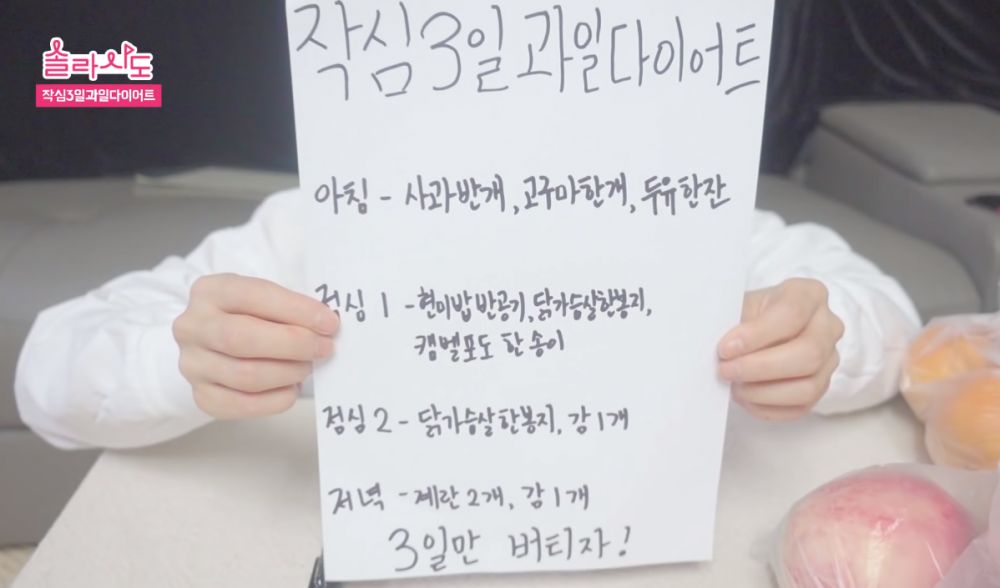 솔라시도
작심3일과일다이어트
작심3일과일다이어트
아침 - 사과반개, 고구마한개, 두유한잔
점심 1 - 현미밥반공기, 닭가슴살한봉지,
캠벨포도 한송이
점심 2 - 닭가슴살한봉지, 감1개
저녁 - 계란2개, 감1개
3일만 버티자!